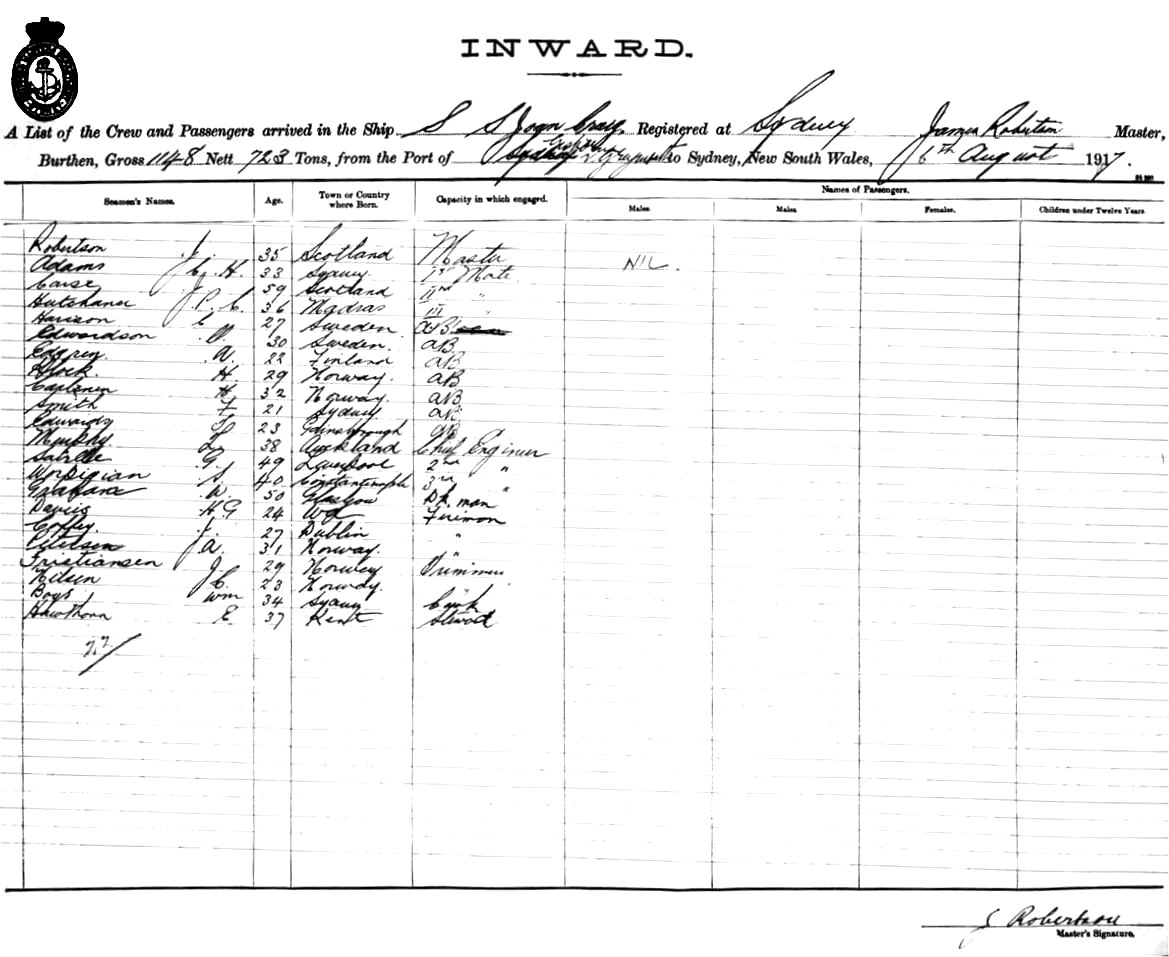 INWARD.
A List of the Crew and Passengers arrived in the Ship S S John Craig. Registered at Sydney James Robertson Master,
Burthen, Gross 1148 Nett 723 Tons, from the Port of to Sydney, New South Wales, 16th August 1917.
Seamen's Names. Age. Town or Country where Born. Capacity in which engaged. Names of Passengers.
Males. Males Females. Children under Twelve Years
Robertson J. 35 Scotland Master
Adams J. H. 33 Sydney. 1st Mate NIL.
Carse 59 Scotland IInd "
J. P. C. 36 Madras III "
C 27 Sweden AB
Edwardson 30 Sweden. AB
A. 22 Finland AB
H 29 Norway. AB
H 32 Norway. AB
Smith F 21 Sydney AB
Edwards 23 AB
Murphy 38 Auckland Chief Engineer
G. 49 Liverpool 2nd "
S. 40 Constantinople 3rd "
Grahame W. 50 Glasgow Dk. man
Davies H G 24 Fireman
Coffey. J. 27 Dublin "
J A. 31 Norway. "
J. 29 Norway Trimmer
Nilsen J C. 23 Norway. "
Boys Wm 34 Sydney Cook
Hawthorn E. 37 Kent
22/
J Robertson
Master's Signature.